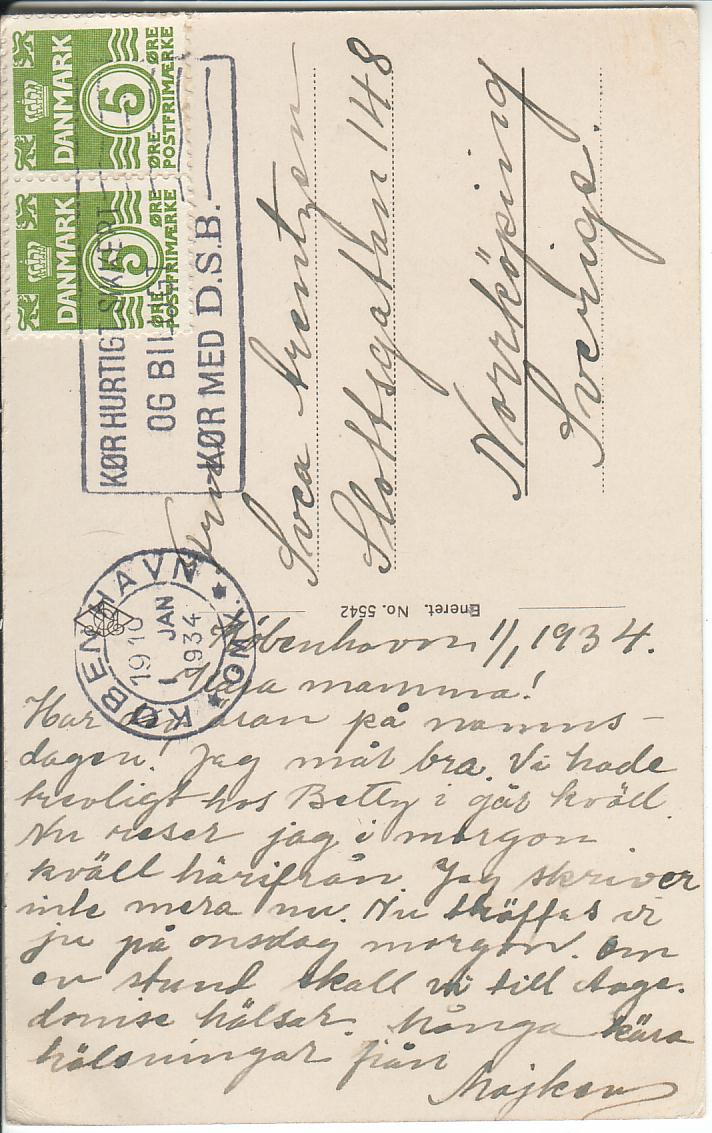 DANMARK
5
ØRE
ØRE
POSTFRIMÆRKE
DANMARK
5
ØRE
ØRE
POSTFRIMÆRKE
KØR HURTIGT SIKKERT
OG BILLIGT
KØR MED D.S.B.
KØBENHAVN OMK.
1 JAN
1934
Fru
Svea Arentzen
Slottsgatan 148
Norrköping
Sverige.
Eneret. No. 5542
København 1/1 1934.
Kära mamma!
Har den äran på namns-
dagen! Jag mår bra. Vi hade
trevligt hos Betty i går kväll.
Nu reser jag i morgon
kväll härifrån. Jag skriver
inte mera nu. Nu träffas vi
ju på onsdag morgon. Om
en stund skall vi till Aage.
hälsar. Många kära
hälsningar från
Majken